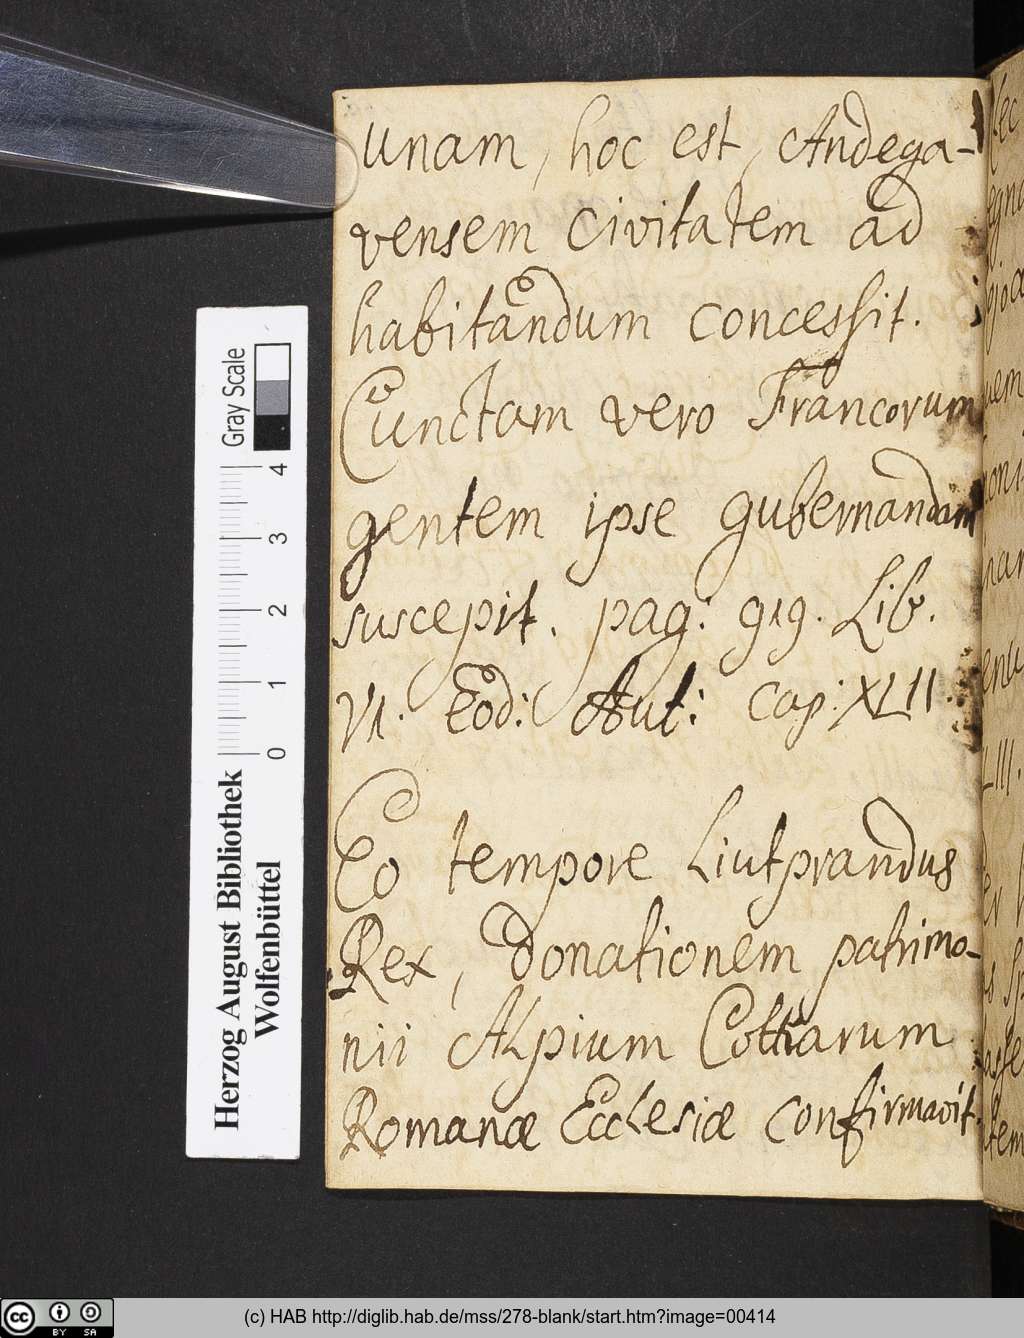 unam, hoc est, Andega-
vensem civitatem ad
habitandum concessit.
Cunctam vero Francorum
gentem ipse gubernandam
suscepit. pag: 919. Lib.
VI. Eod: Aut: Cap: XLII.
Eo tempore Liutprandus
Rex, donationem patrimo-
nii Alpium Cottiarum
Romanæ Ecclesiæ confirmavit.
Gray Scale
0 1 2 3 4
Herzog August Bibliothek
Wolfenbüttel
cc BY SA
(c) HAB http://diglib.hab.de/mss/278-blank/start.htm?image=00414